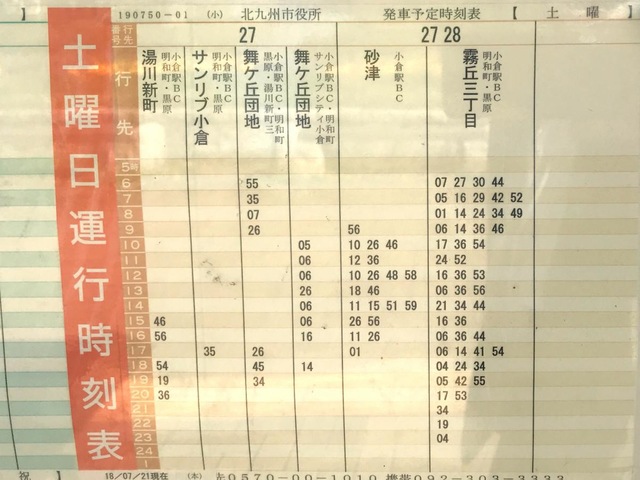 】 190750-01 (小) 北九州市役所 発車予定時刻表 【 土 曜 】
土曜日運行時刻表
行先番号 27 27 28
行先
湯川新町 小倉駅BC 明和町・黒原
サンリブ小倉 小倉駅BC 明和町・黒原
舞ケ丘団地 小倉駅BC・明和町 黒原・湯川新町三
舞ケ丘団地 小倉駅BC・明和町 サンリブシティ小倉
砂津 小倉駅BC
霧丘三丁目 小倉駅BC 明和町・黒原
5時
6 55 07 27 30 44
7 35 05 16 29 42 52
8 07 01 14 24 34 49
9 26 56 06 14 36 46
10 05 10 26 46 17 36 54
11 06 12 36 24 52
12 06 10 26 48 58 16 36 53
13 26 18 46 06 36 56
14 06 11 15 51 59 21 34 44
15 46 06 26 56 16 36
16 56 16 11 26 06 36 44
17 35 26 01 06 14 41 54
18 54 45 14 04 24 34
19 19 34 05 42 55
20 36 17 53
21 34
22 19
23 04
24
1
祝 】 18/07/21現在 (本) 0570-00-1010 携帯092-303-3333